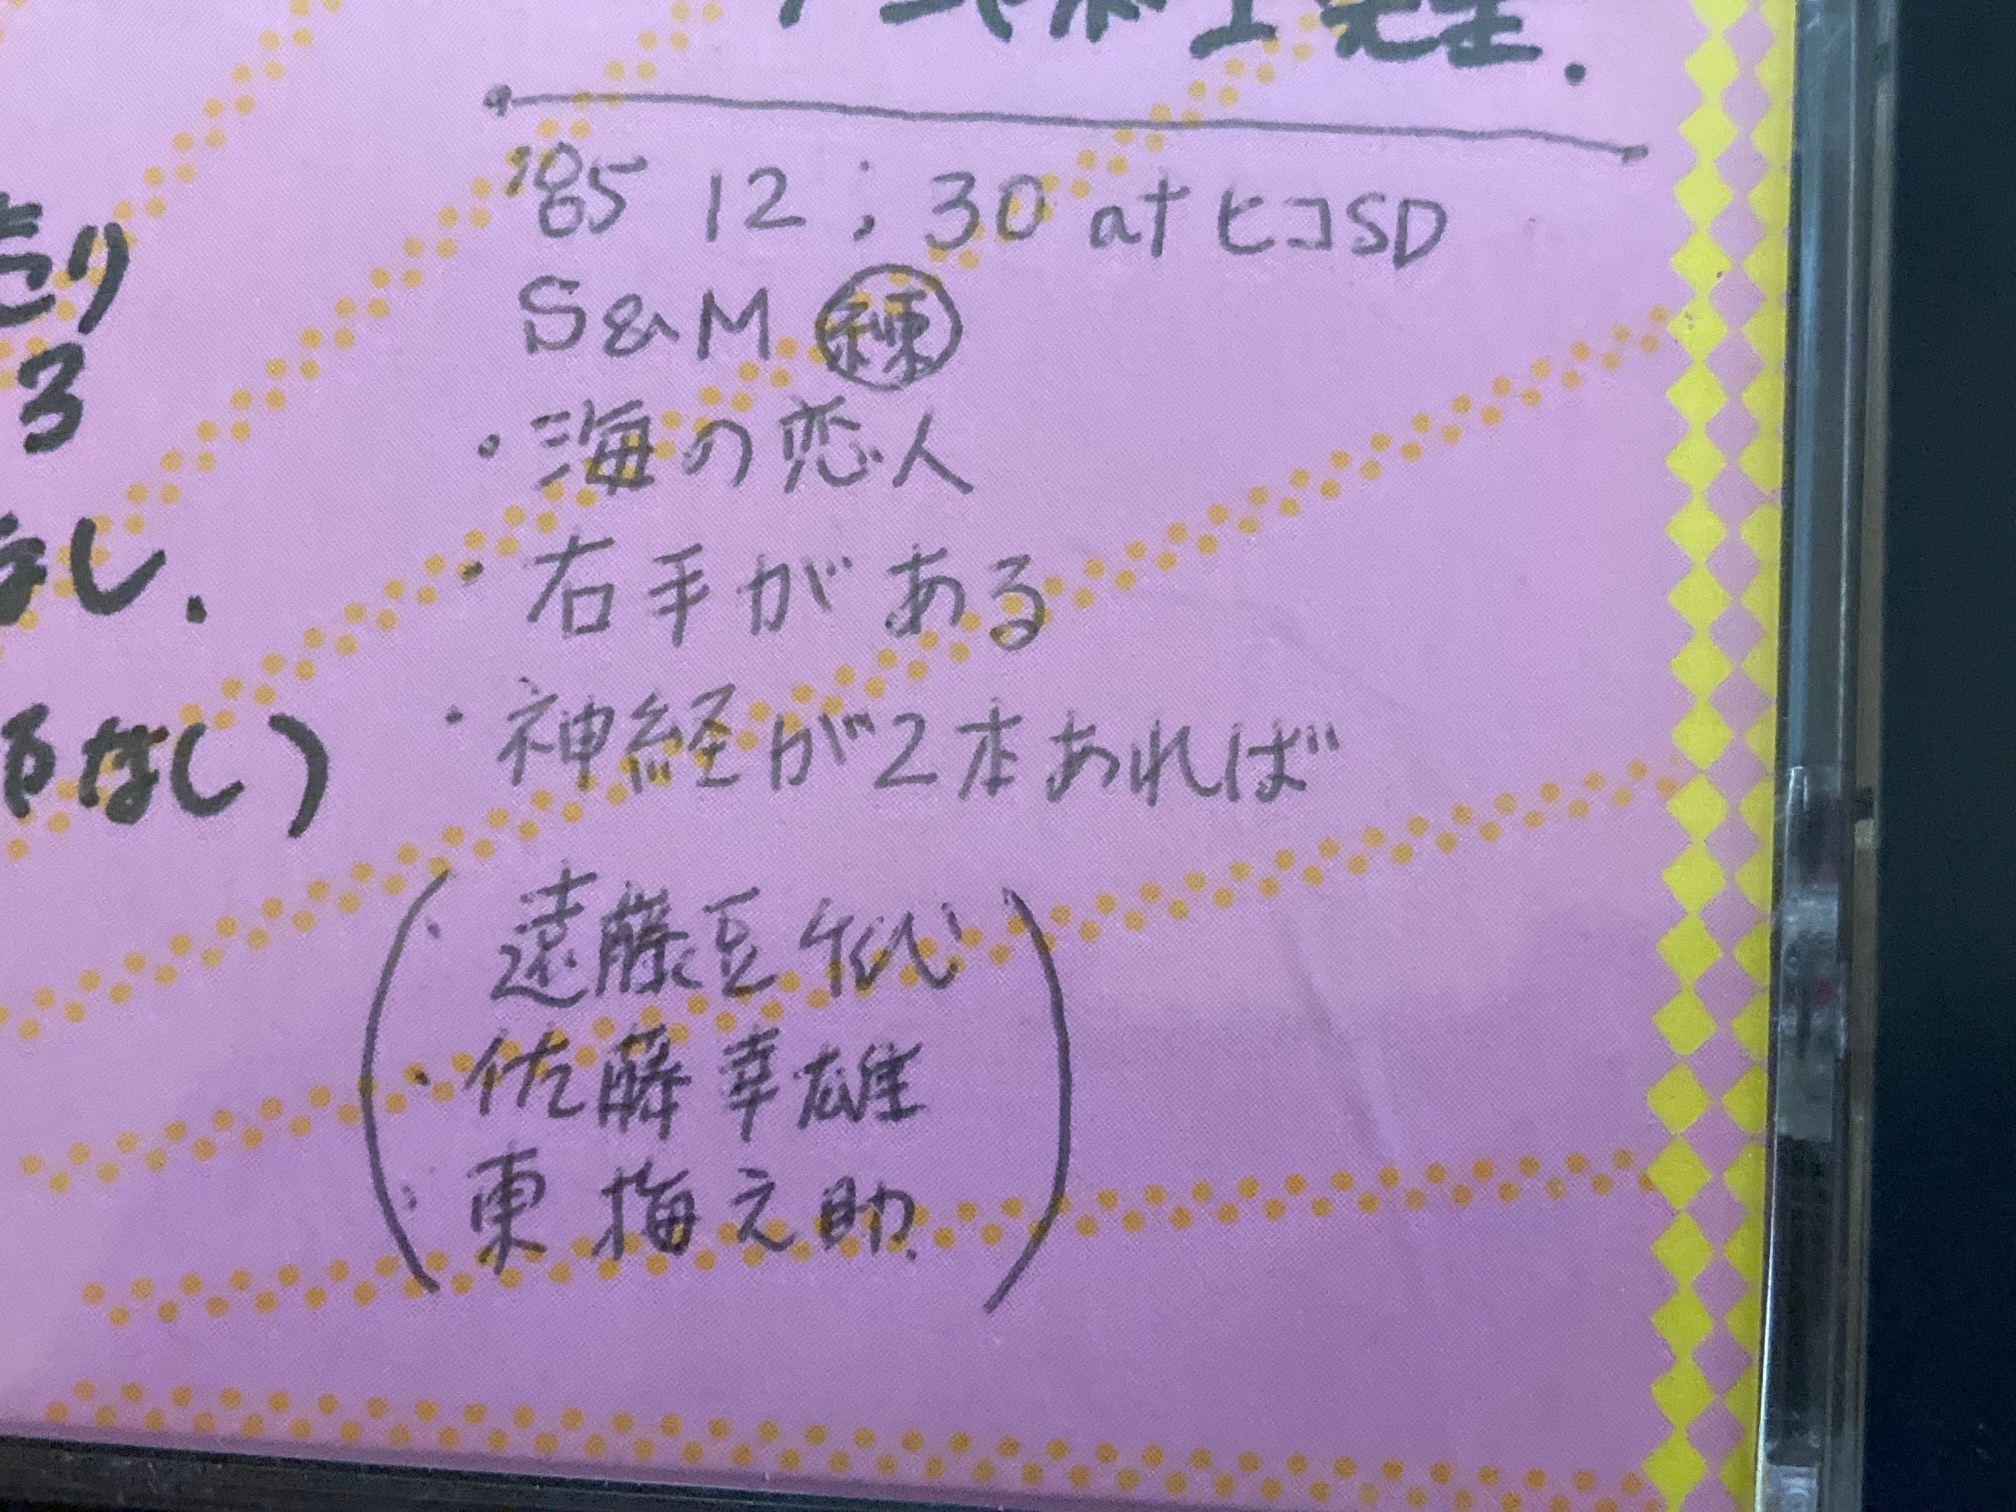 売り
3
なし.
るなし)
'85 12 ; 30 at ヒコSD
S&M 練
・海の恋人
・右手がある
・神経が2本あれば
・遠藤豆
・佐藤幸雄
・東梅之助